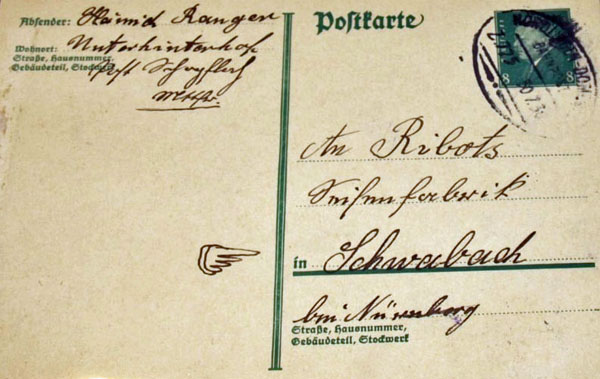 Absender: Heinrich Ranger
Wohnort: Unterhinterhof
Straße, Hausnummer,
Gebäudeteil, Stockwerk
Post
Postkarte
8 8
An Ribots
Seifenfabrik
in Schwabach
bei Nürnberg
Straße, Hausnummer,
Gebäudeteil, Stockwerk